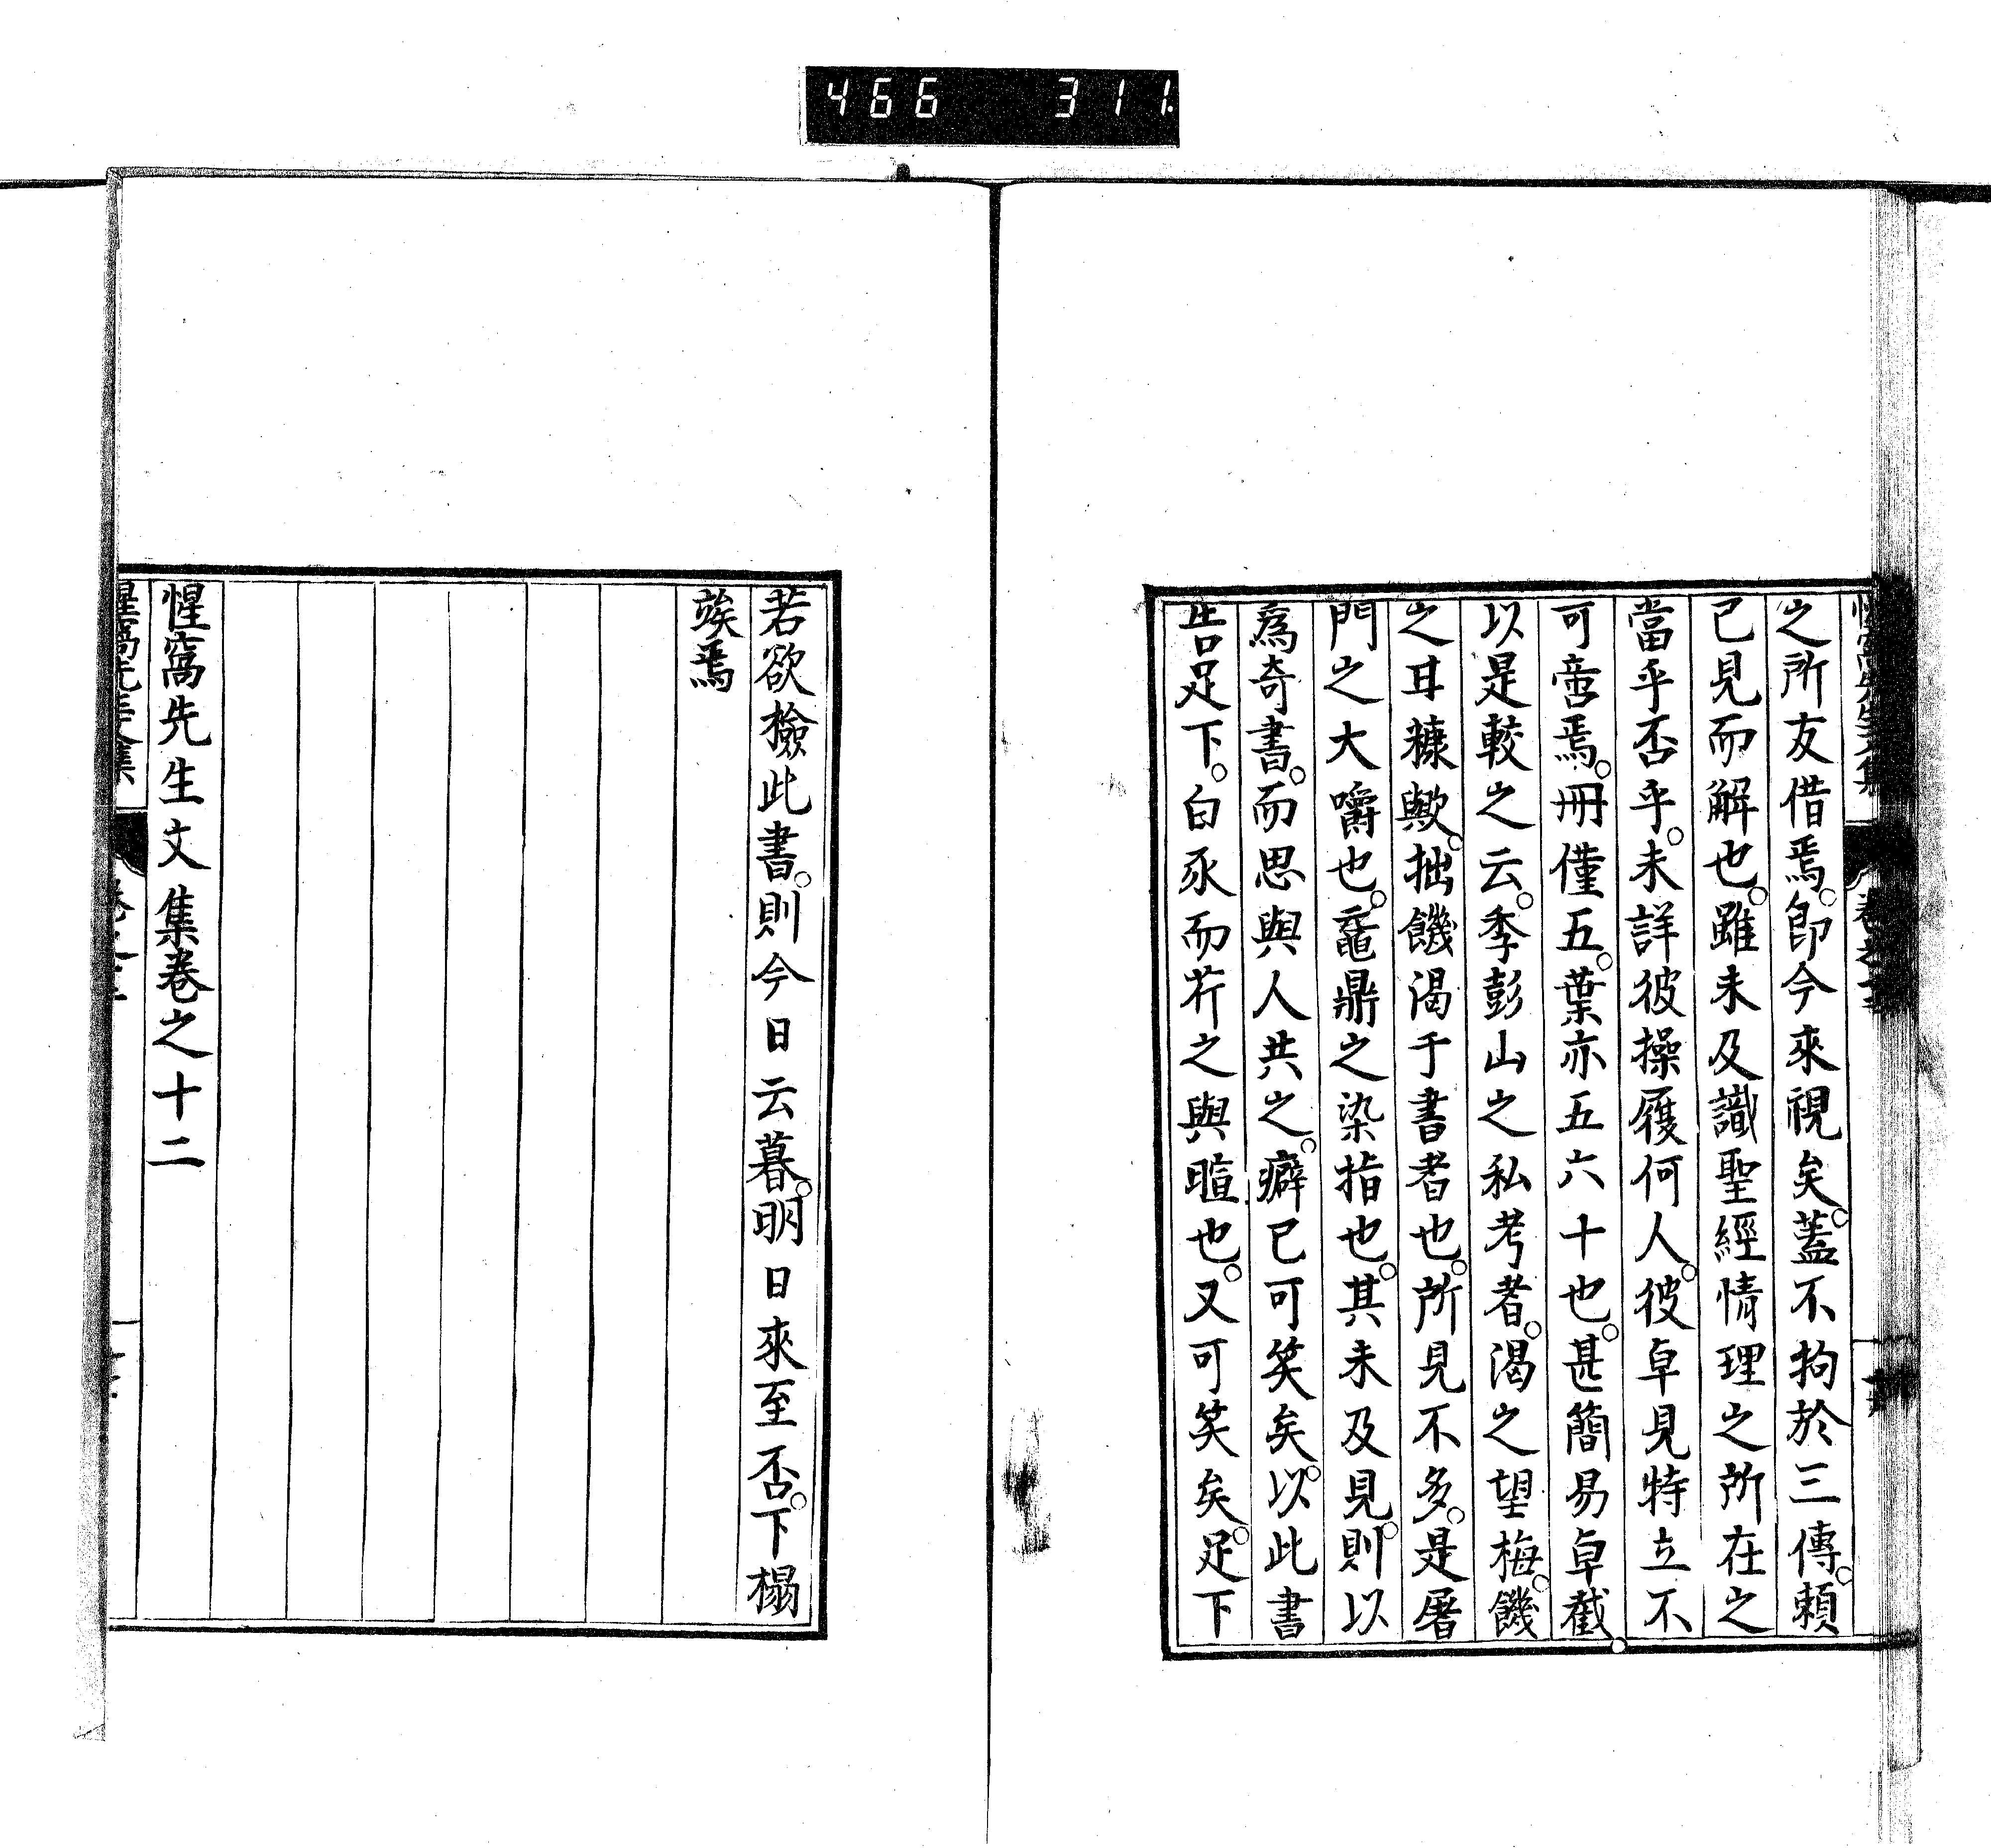 466 311
之所友借焉。即今來視矣。蓋不拘於三傳。賴
己見而解也。雖未及識聖經情理之所在之
當乎否乎。未詳彼操履何人。彼卓見特立不
可啻焉。冊僅五。葉亦五六十也。甚簡易卓截。
以是較之云。季彭山之私考者。渴之望梅。饑
之甘糠歟。拙饑渴于書者也。所見不多。是屠
門之大嚼也。黿鼎之染指也。其未及見。則以
爲奇書。而思與人共之。癖已可笑矣。以此書
告足下。白豕而芹之與暄也。又可笑矣。足下
若欲檢此書。則今日云暮。明日來至否。下榻
竢焉
惺窩先生文集卷之十二